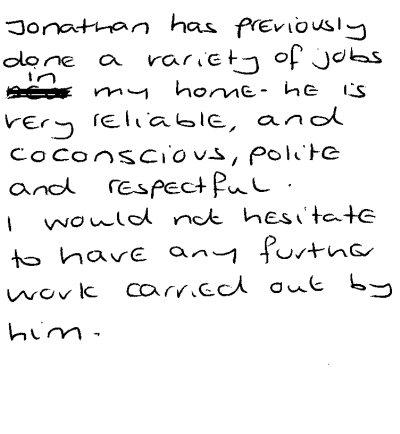 Jonathan has previously
done a variety of jobs
in
my home - he is
very reliable, and
coconscious, polite
and respectful.
I would not hesitate
to have any further
work carried out by
him.